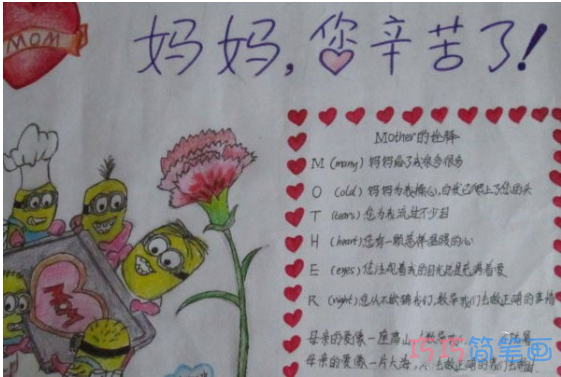 MOM
妈妈,您辛苦了!
Mother的诠释
M (many) 妈妈给了我很多很多
O (old) 妈妈为我操心,白发已爬上了您的头
T (tears) 您为我流过不少泪
H (heart) 您有一颗慈祥温暖的心
E (eyes) 您注视着我的目光总是充满着爱
R (right) 您从不欺骗我们,教导我们去做正确的事情
MOM
母亲的爱像一座高山
母亲的爱像一片大海,
巧巧简笔画